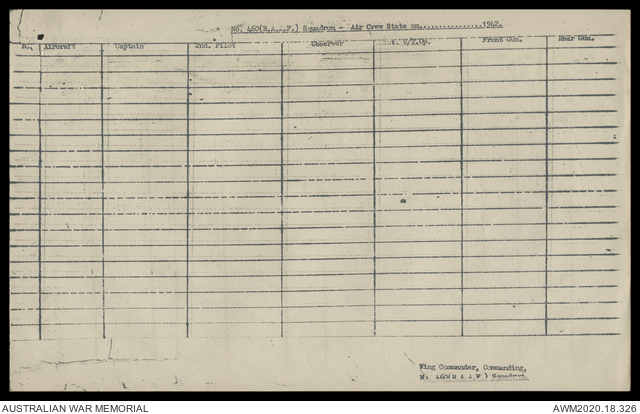 No. 460(R.A.A.F.) Squadron - Air Crew State on................1942.
Aircraft Captain 2nd. Pilot Observer 1st. W/T.Op. Front Gun. Rear Gun.
Wing Commander, Commanding,
No. 460(R.A.A.F.) Squadron.
AUSTRALIAN WAR MEMORIAL
AWM2020.18.326